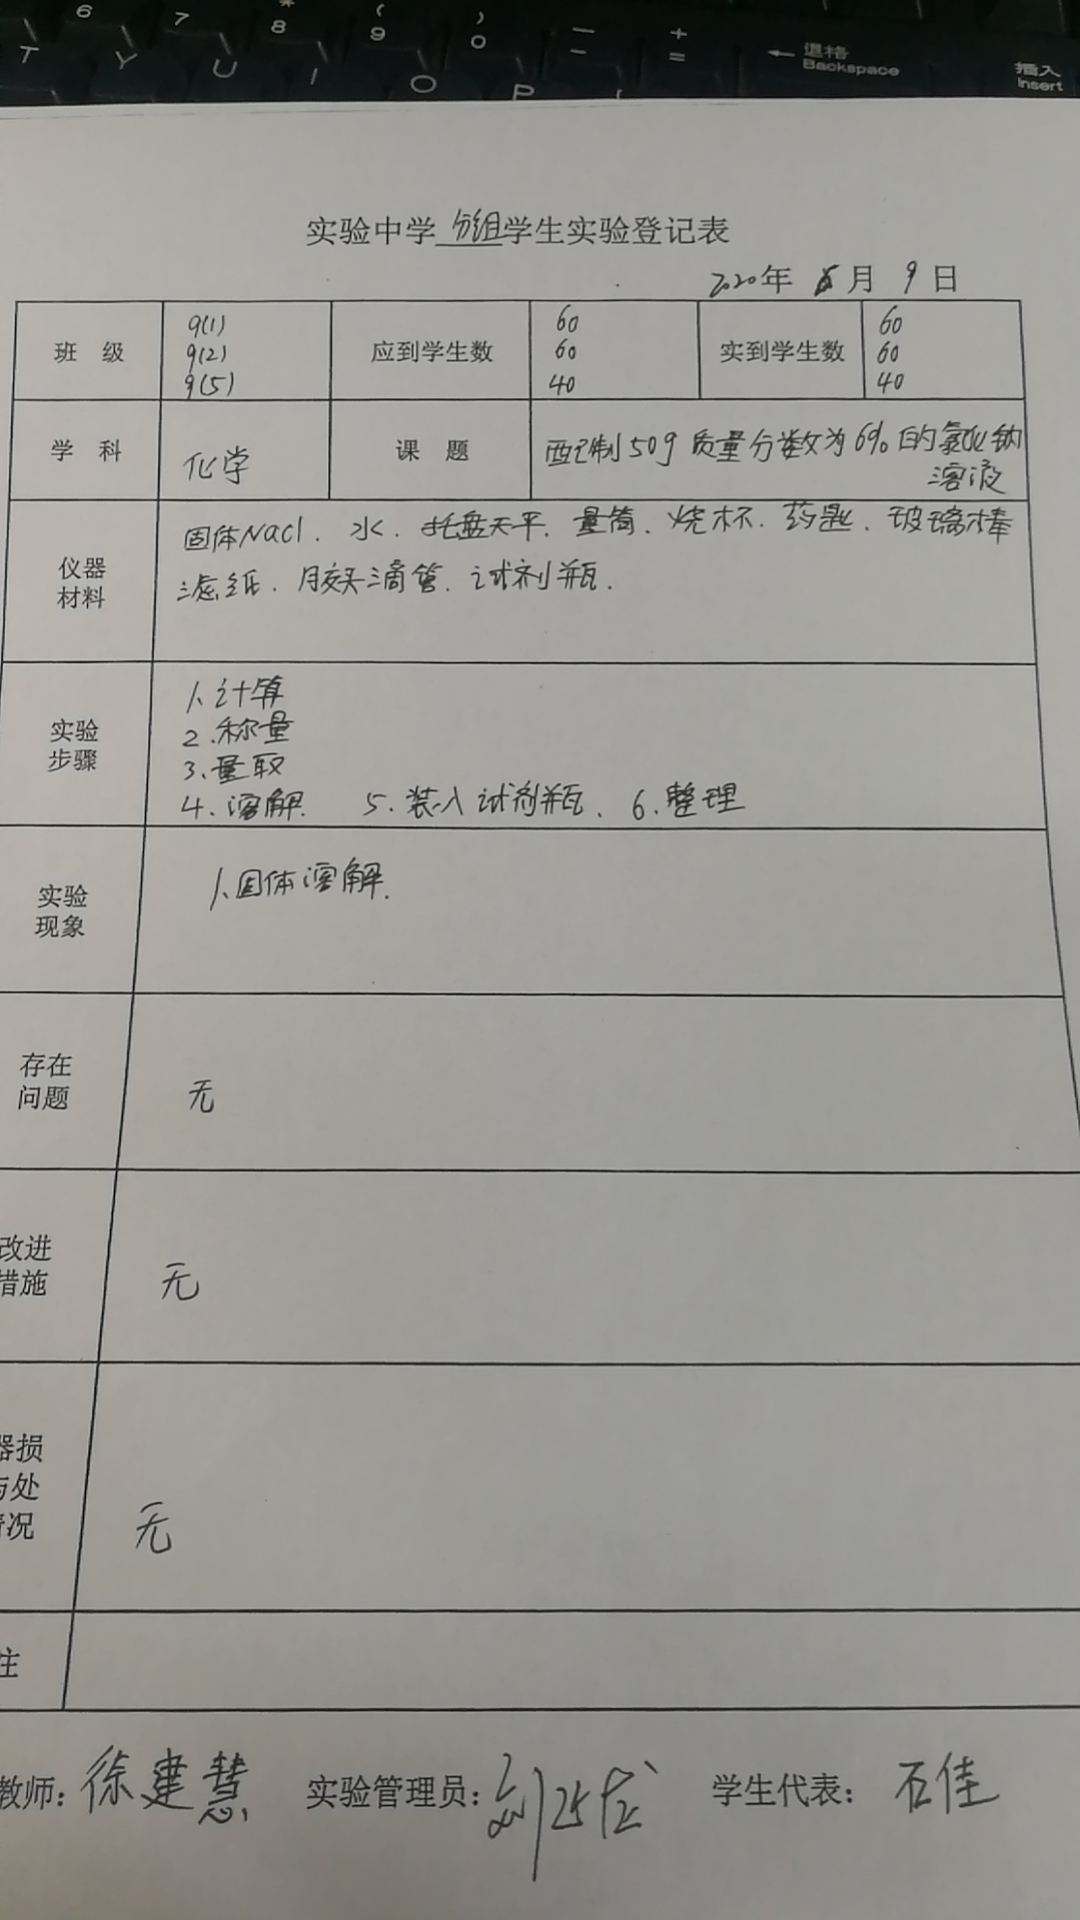 6 7 * 8 ( 9 ) 0 — - + =
T Y U I O P
← 退格
Backspace
插入
Insert
实验中学分组学生实验登记表
2020年 月 9 日
班 级
9(1)
9(2)
9(5)
应到学生数
60
60
40
实到学生数
60
60
40
学 科
化学
课 题
配制50g质量分数为6%的氯化钠
溶液
仪器
材料
固体NaCl. 水. 托盘天平. 量筒. 烧杯. 药匙. 玻璃棒
滤纸. 胶头滴管. 试剂瓶.
实验
步骤
1、计算
2.称量
3、量取
4.溶解. 5.装入试剂瓶. 6.整理
实验
现象
1、固体溶解.
存在
问题
无
改进
措施
无
器损
与处
情况
无
注
教师: 徐建慧 实验管理员: 学生代表: 石佳